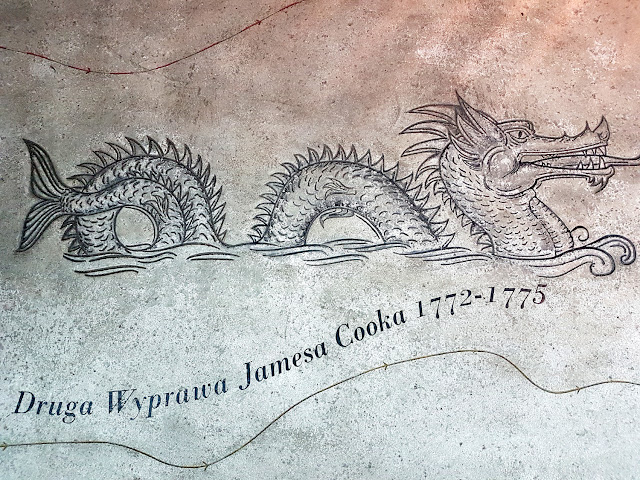 Druga Wyprawa Jamesa Cooka 1772-1775